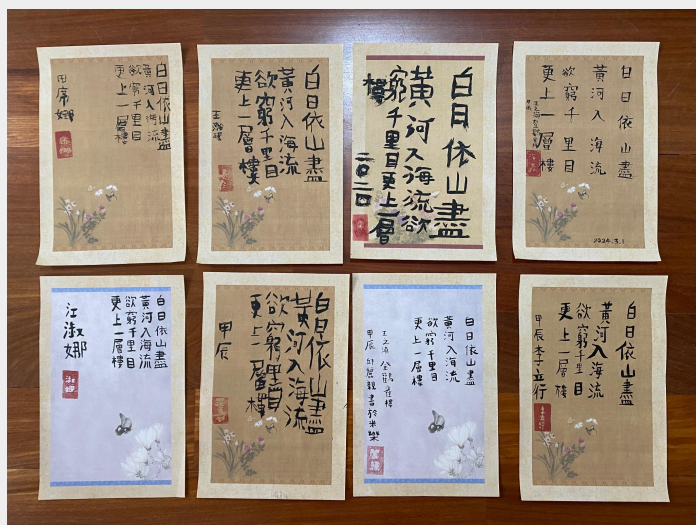 白日依山盡
黃河入海流
欲窮千里目
更上一層樓
白日依山盡
黃河入海流
欲窮千里目
更上一層樓
白日依山盡
黃河入海流欲
窮千里目更上一層
樓
二〇二〇
白日依山盡
黃河入海流
欲窮千里目
更上一層樓
2024.3.1
白日依山盡
黃河入海流
欲窮千里目
更上一層樓
江淑娜
白日依山盡
黃河入海流
欲窮里目
更上一層樓
甲辰
白日依山盡
黃河入海流
欲窮千里目
更上一層樓
白日依山盡
黃河入海流
欲窮千里目
更上一層樓
甲辰李立行